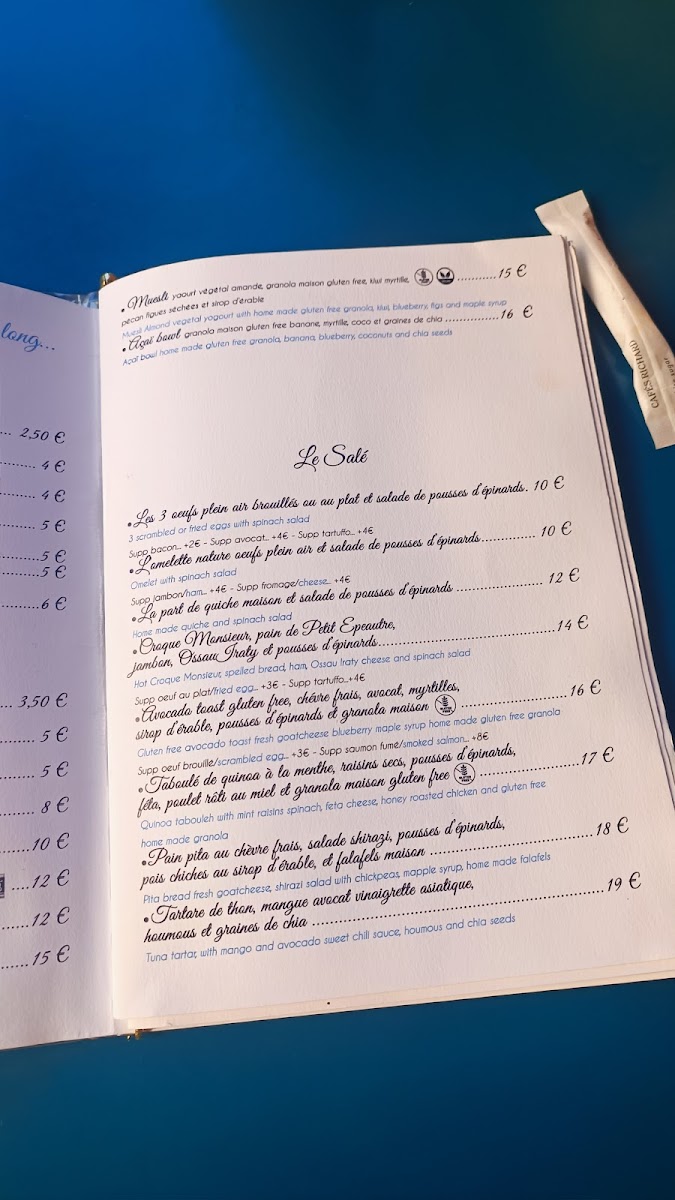 long...
... 2,50 €
....... 4 €
....... 4 €
....... 5 €
.......5 €
.......5 €
.......6 €
... 3,50 €
..... 5 €
..... 5 €
..... 8 €
.....10 €
....12 €
.....12 €
.....15 €
• Muesli yaourt végétal amande, granola maison gluten free, kiwi myrtille, ..........15 €
pécan figues séchées et sirop d'érable
Muesli Almond vegetal yogourt with home made gluten free granola, kiwi, blueberry, figs and maple syrup
• Açaï bowl granola maison gluten free banane, myrtille, coco et graines de chia ..............16 €
Açaï bowl home made gluten free granola, banana, blueberry, coconuts and chia seeds
Le Salé
• Les 3 oeufs plein air brouillés ou au plat et salade de pousses d'épinards. 10 €
3 scrambled or fried eggs with spinach salad
Supp bacon... +2€ - Supp avocat... +4€ - Supp tartuffo... +4€
• L'omelette nature oeufs plein air et salade de pousses d'épinards............. 10 €
Omelet with spinach salad
Supp jambon/ham... +4€ - Supp fromage/cheese... +4€
• La part de quiche maison et salade de pousses d'épinards ..................... 12 €
Home made quiche and spinach salad
• Croque Monsieur, pain de Petit Epeautre,
jambon, Ossau Iraty et pousses d'épinards...........................................14 €
Hot Croque Monsieur, spelled bread, ham, Ossau Iraty cheese and spinach salad
Supp oeuf au plat/fried egg... +3€ - Supp tartuffo...+4€
• Avocado toast gluten free, chévre frais, avocat, myrtilles,
sirop d'érable, pousses d'épinards et granola maison ........................... 16 €
Gluten free avocado toast fresh goatcheese blueberry maple syrup home made gluten free granola
Supp oeuf brouillé/scrambled egg... +3€ - Supp saumon fumé/smoked salmon... +8€
• Taboulé de quinoa à la menthe, raisins secs, pousses d'épinards,
féta, poulet rôti au miel et granola maison gluten free .........................17 €
Quinoa tabouleh with mint raisins spinach, feta cheese, honey roasted chicken and gluten free
home made granola
• Pain pita au chèvre frais, salade shirazi, pousses d'épinards,
pois chiches au sirop d'érable, et falafels maison .................................... 18 €
Pita bread fresh goatcheese, shirazi salad with chickpeas, mapple syrup, home made falafels
• Tartare de thon, mangue avocat vinaigrette asiatique,
houmous et graines de chia ................................................................19 €
Tuna tartar, with mango and avocado sweet chill sauce, houmous and chia seeds
CAFÉS RICHARD